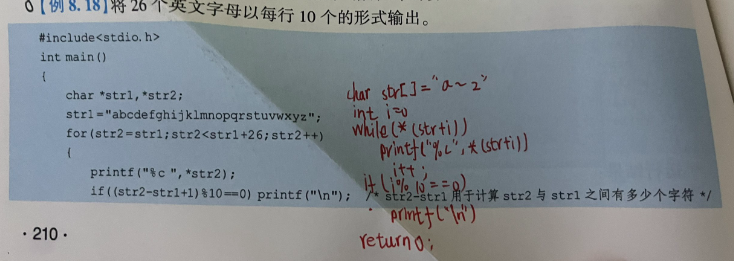 【例 8.18】将 26 个英文字母以每行 10 个的形式输出。
#include<stdio.h>
int main()
{
char *str1,*str2;
str1="abcdefghijklmnopqrstuvwxyz";
for(str2=str1;str2<str1+26;str2++)
{
printf("%c ",*str2);
if((str2-str1+1)%10==0) printf("\n"); /* str2-str1 用于计算 str2 与 str1 之间有多少个字符 */
char str[]="a~z"
int i=0
while(*(str+i))
printf("%c",*(str+i)]
i++;
if(i%10==0)
printf("\n")
return 0;
·210·